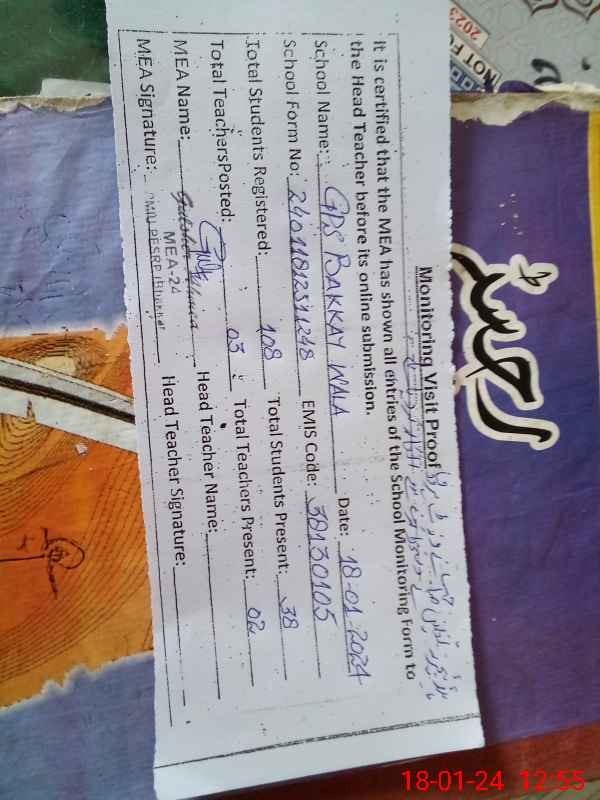 Monitoring Visit Proof
It is certified that the MEA has shown all entries of the School Monitoring Form to
the Head Teacher before its online submission.
Date: 18-01-2024
School Name: GPS BAKKAY WALA
School Form No: EMIS Code: 38130105
Total Students Registered: 108 Total Students Present: 38
Total TeachersPosted: 03 Total Teachers Present: 02
MEA Name: Head Teacher Name:
MEA Signature: MEA-24 Head Teacher Signature:
رجسٹر
2023
NOT FO
18-01-24 12:55